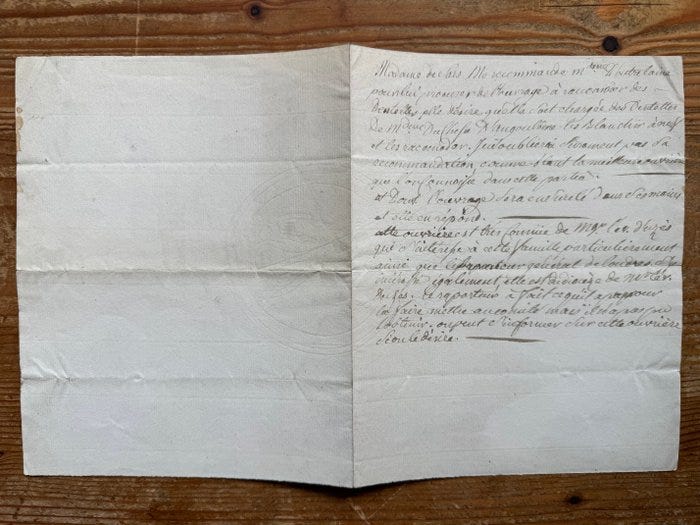 Madame de
Me recommande mde
pour lui procurer de l'ouvrage à raccomoder des
Dentelles, elle désire quelle soit chargée des Dentelles
De Mdme Duchesse D'angoulême les Blanchir à neuf
et les racomoder. je n'oublierai surement pas Sa
recommandation comme étant la meilleure ouvrière
que l'on connoisse dans cette partie.
et Dont l'ouvrage Sera en sureté Dans Ses mains
et elle en répond.
cette ouvrière est très connue de Mgr l'ev. d'uzès
qui S'intéresse à cette famille particulièrement
ainsi que le général de londres, Sy
intéresse également, elle est du diocèse de
Le raporteur à fait ce qu'il a pu pour
la faire mettre au comité mais il n'a pas pu
l'obtenir. on peut S'informer Sur cette ouvrière
Si on le désire.